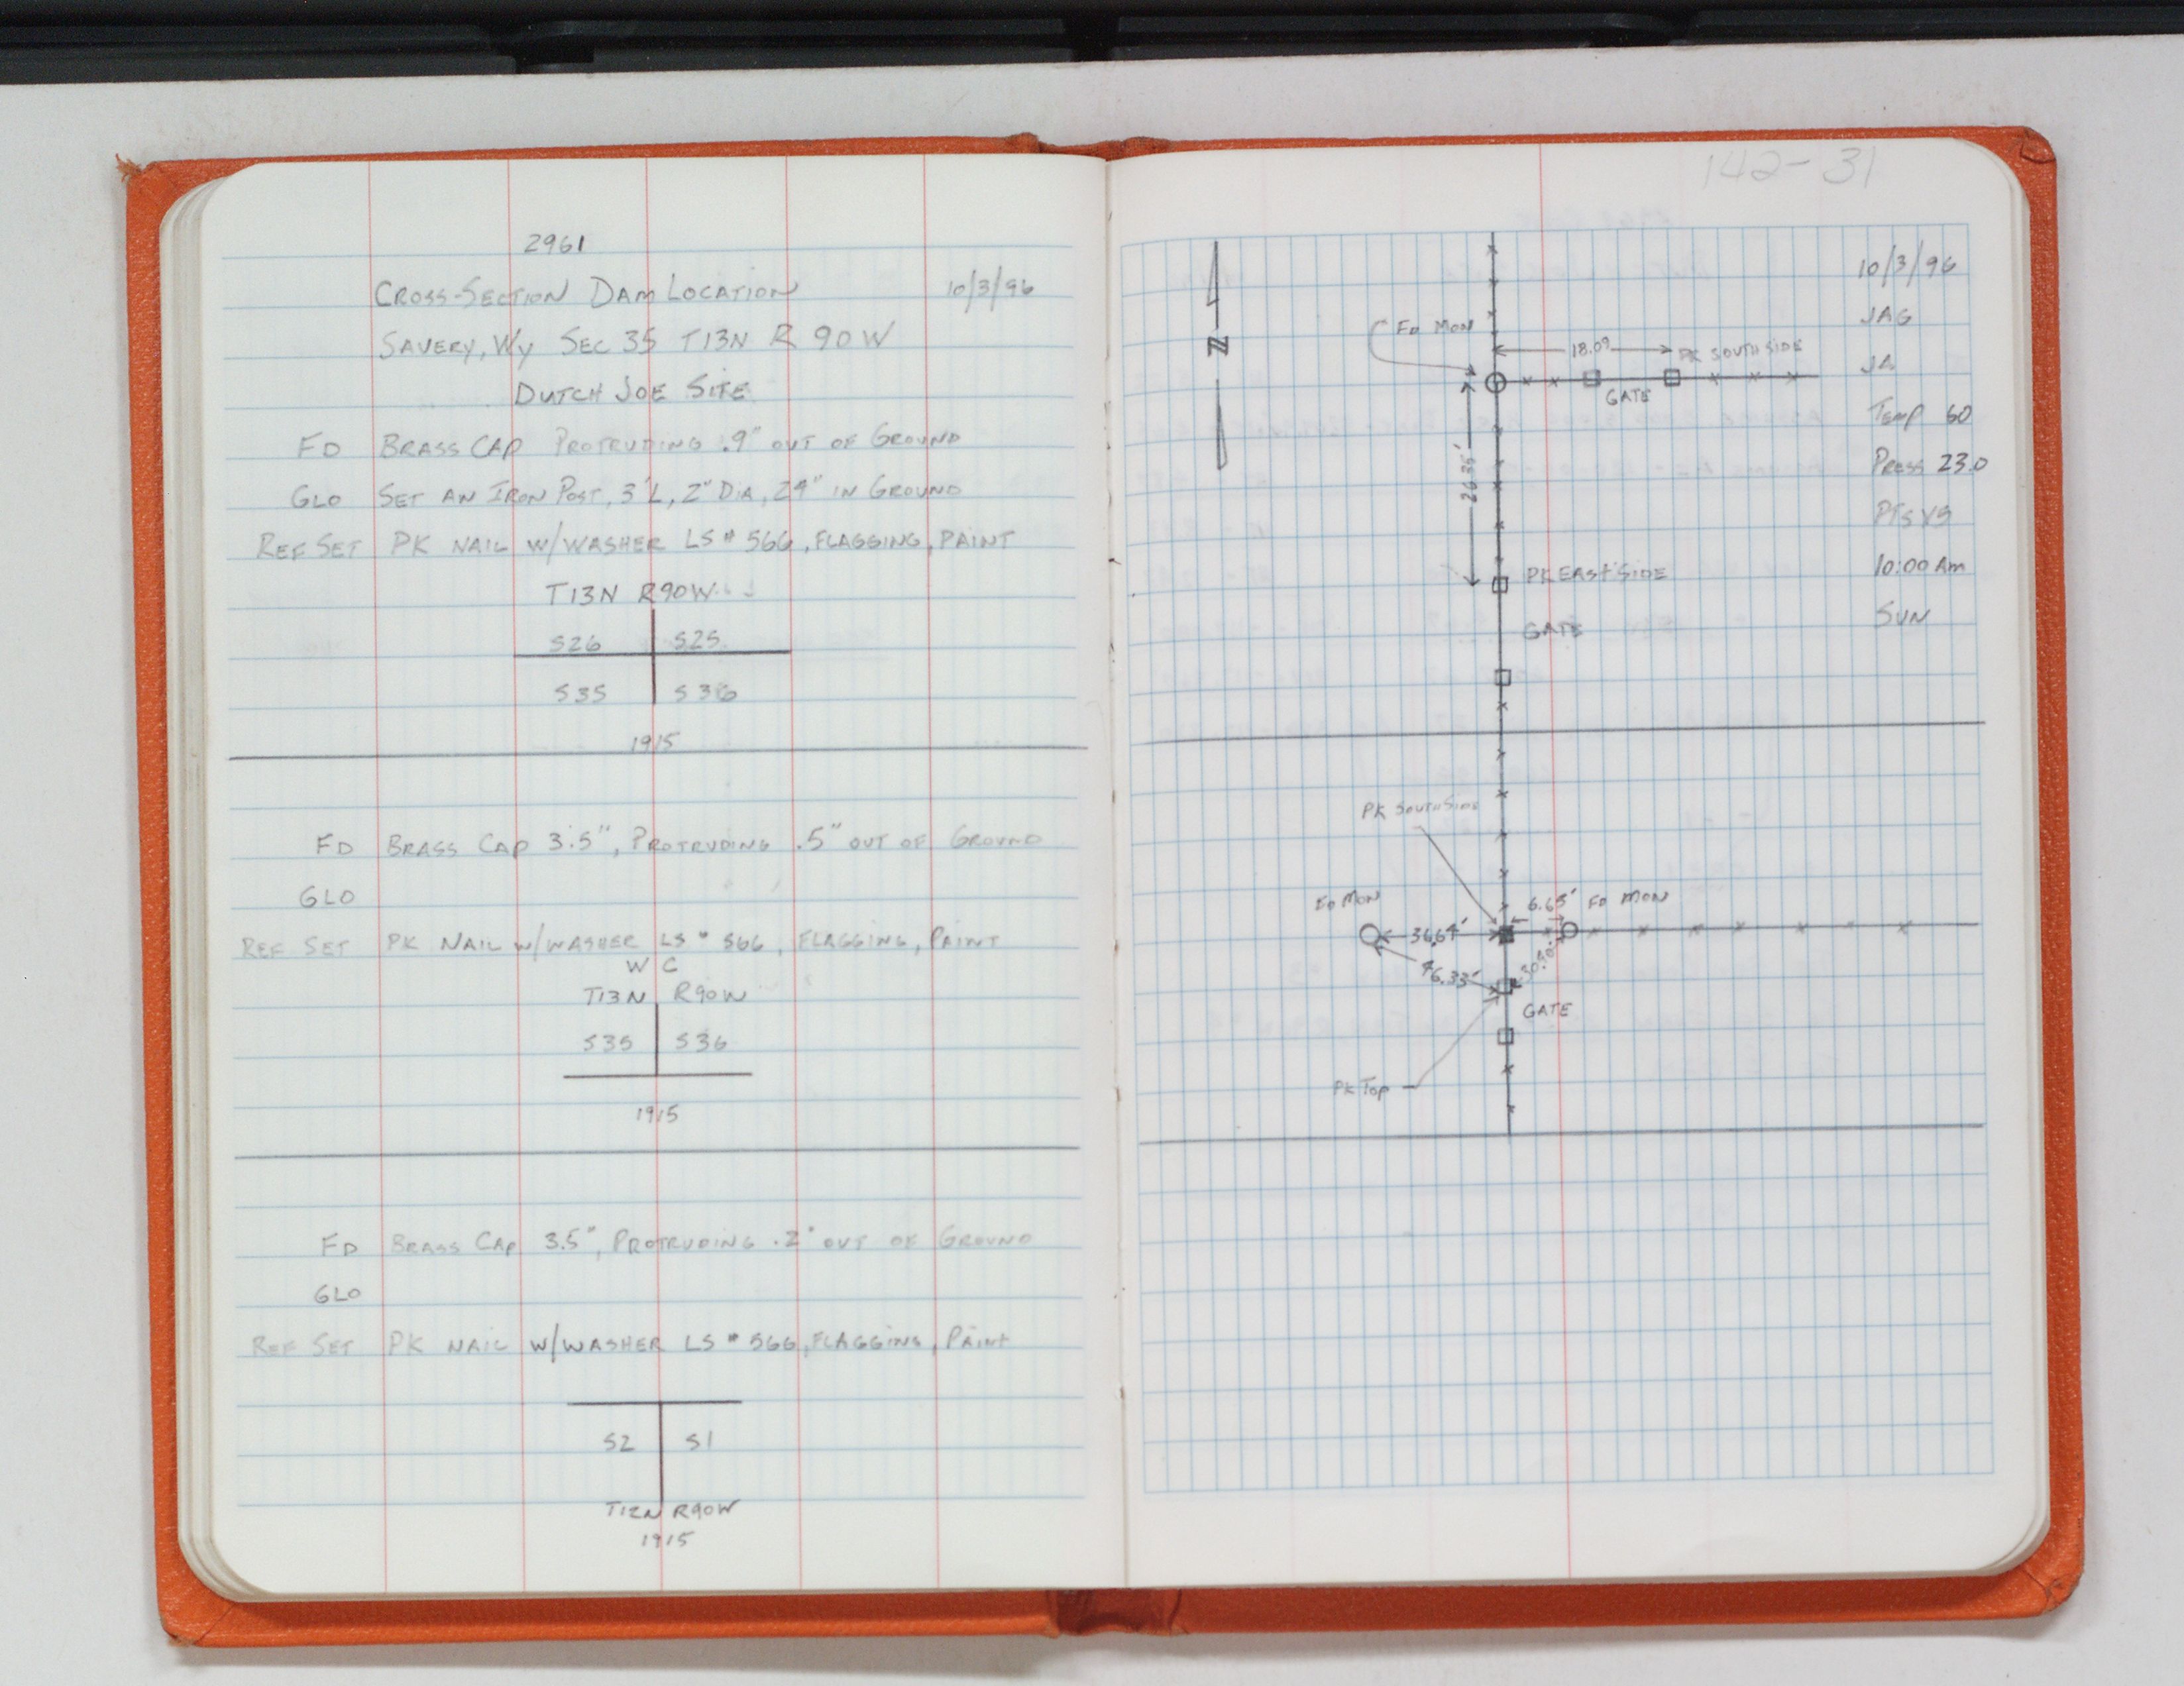 2961
CROSS-SECTION DAM LOCATION 10/3/96
SAVERY, WY SEC 35 T13N R 90W
DUTCH JOE SITE
FD BRASS CAP PROTRUDING .9" OUT OF GROUND
GLO SET AN IRON POST, 3'L, 2" DIA, 24" IN GROUND
REF SET PK NAIL W/WASHER LS# 566, FLAGGING, PAINT
T13N R90W
S26 S25
S35 S36
1915
FD BRASS CAP 3.5", PROTRUDING .5" OUT OF GROUND
GLO
REF SET PK NAIL W/WASHER LS# 566, FLAGGING, PAINT
W C
T13N R90W
S35 S36
1915
FD BRASS CAP 3.5", PROTRUDING .2" OUT OF GROUND
GLO
REF SET PK NAIL W/WASHER LS# 566, FLAGGING, PAINT
S2 S1
T12N R90W
1915
142-31
N
10/3/96
JAG
Temp 60
Press 23.0
10:00 Am
SUN
FD MON
18.09
PK SOUTH SIDE
GATE
26.35'
PK EAST SIDE
GATE
PK SOUTH SIDE
FD MON
6.65' FD MON
36.64'
46.33'
GATE
PK TOP